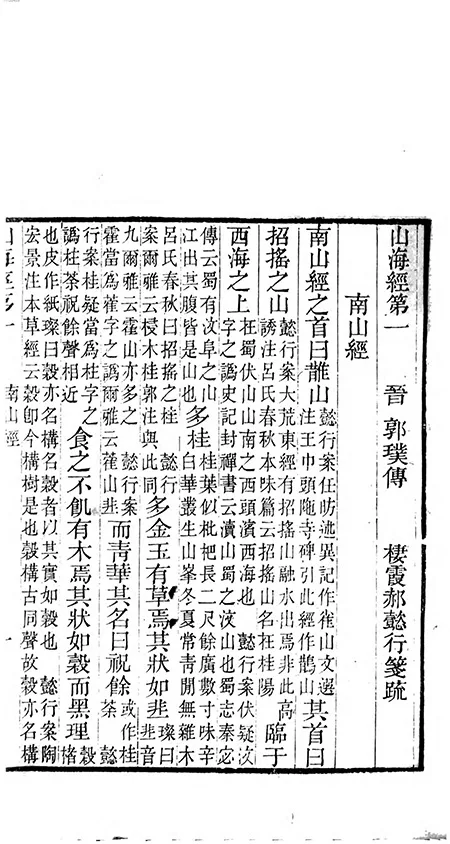 山海經第一　晉　郭璞傳　棲霞郝懿行箋疏
南山經
南山經之首曰䧿山懿行案任昉述異記作雀山文選注王巾頭陁寺碑引此經作鵲山其首曰
招搖之山懿行案大荒東經有招搖山融水出焉非此高誘注呂氏春秋本味篇云招搖山名在桂陽臨于
西海之上在蜀伏山山南之西頭濱西海也　懿行案伏疑汶字之譌史記封禪書云瀆山蜀之汶山也蜀志秦宓
傳云蜀有汶阜之山江出其腹皆是山也多桂桂葉似枇杷長二尺餘廣數寸味辛白華叢生山峯冬夏常青閒無雜木
呂氏春秋曰招搖之桂　懿行案爾雅云梫木桂郭注與此同多金玉有草焉其狀如韭璨曰韭音
九爾雅云霍山亦多之　懿行案霍當為藿字之譌爾雅云藿山韭而青華其名曰祝餘或作桂荼　懿
行案桂疑當為柱字之譌柱荼祝餘聲相近食之不飢有木焉其狀如榖而黑理榖楮
也皮作紙璨曰榖亦名構名榖者以其實如榖也　懿行案陶宏景注本草經云榖卽今構樹是也榖構古同聲故榖亦名構
山海經第一　南山經　一